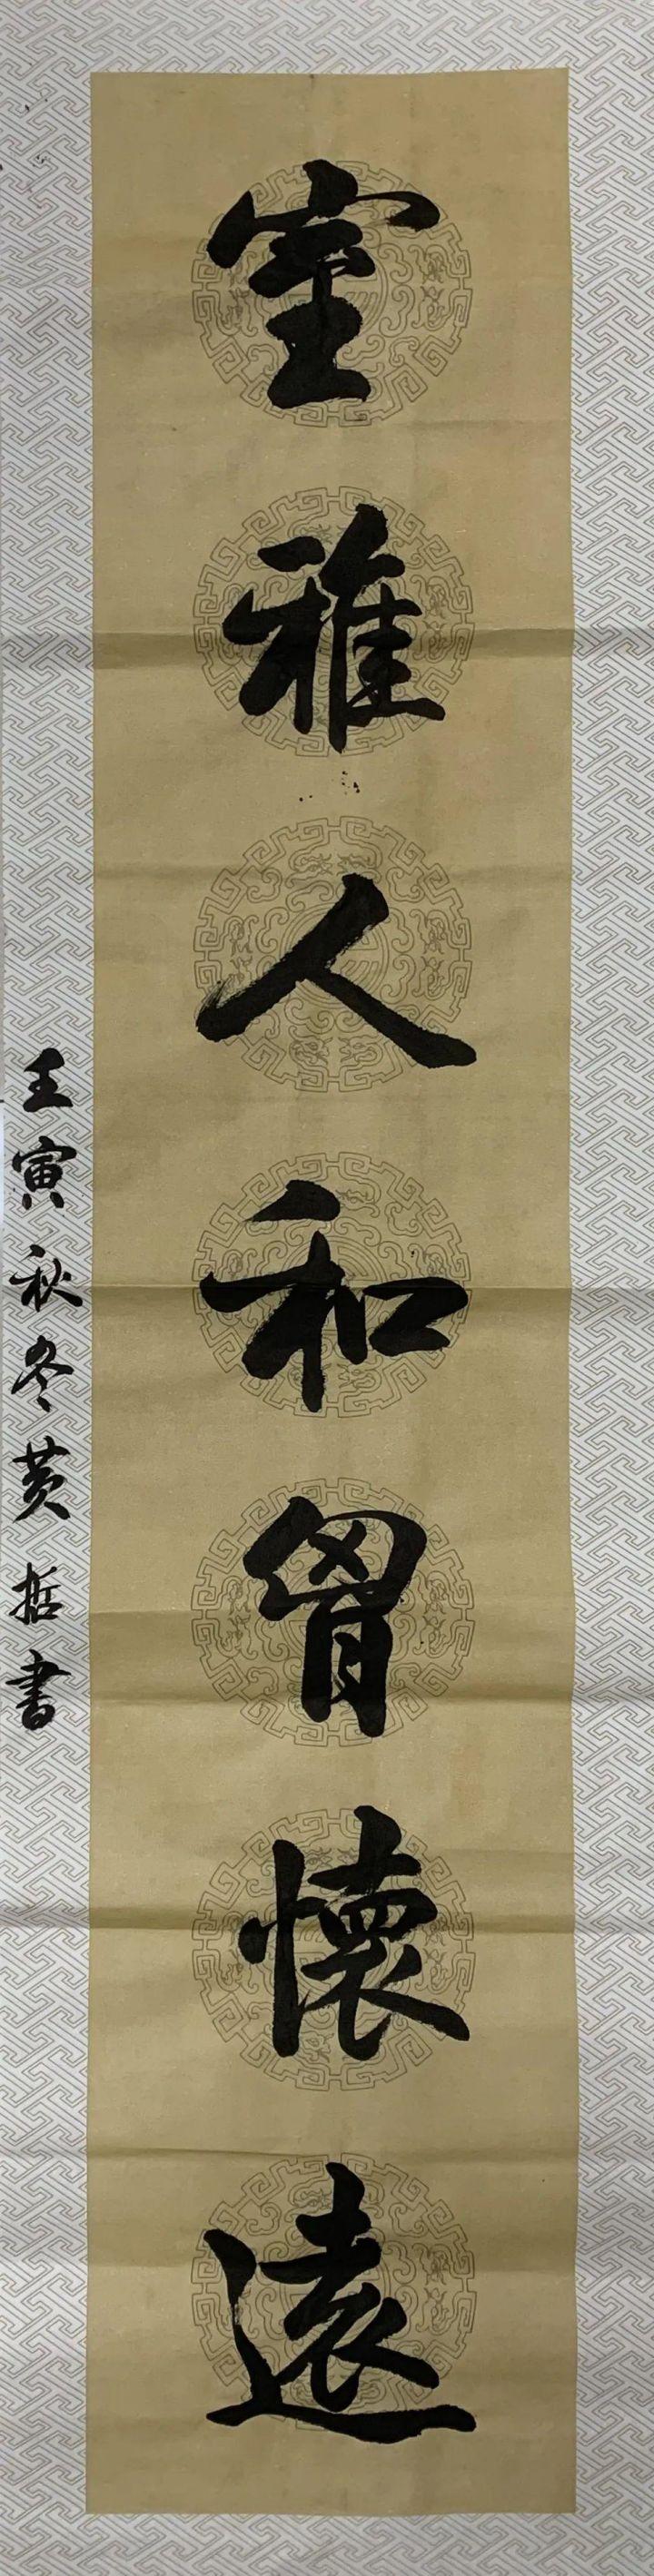 室雅人和胷懷遠
壬寅秋冬黄哲書